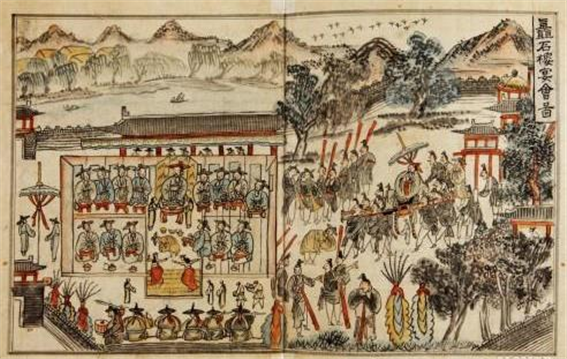 矗石樓宴會啚